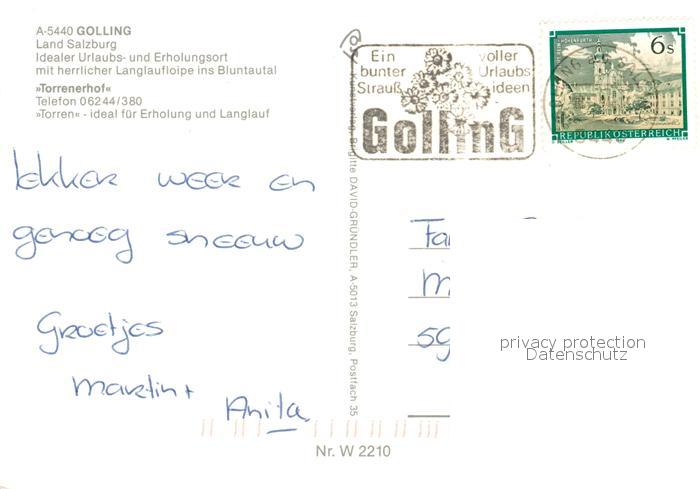 A-5440 GOLLING
Land Salzburg
Idealer Urlaubs- und Erholungsort
mit herrlicher Langlaufloipe ins Bluntautal
»Torrenerhof«
Telefon 06244/380
»Torren« - ideal für Erholung und Langlauf
Ein voller
bunter Urlaubs
Strauß ideen
GollinG
6s
REPUBLIK ÖSTERREICH
Kunstverlag Brigitte DAVID-GRÜNDLER, A-5013 Salzburg, Postfach 35
lekker weer en
genoeg sneeuw
Groetjes
Martin +
Anita
Fa
M
59
privacy protection
Datenschutz
Nr. W 2210